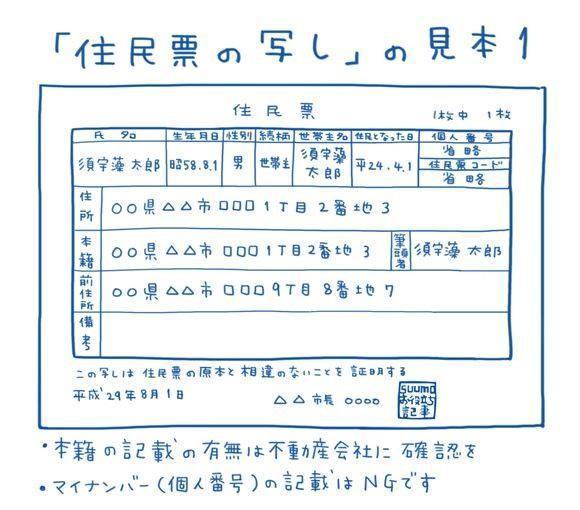 「住民票の写し」の見本1
住民票
1枚中 1枚
氏名 生年月日 性別 続柄 世帯主名 住民となった日 個人番号
須宇藻 太郎 昭58.8.1 男 世帯主 須宇藻 太郎 平24.4.1 省略
住民票コード
省略
住所 ○○県△△市□□□1丁目2番地3
本籍 ○○県△△市□□□1丁目2番地3 筆頭者 須宇藻 太郎
前住所 ○○県△△市□□□9丁目8番地7
備考
この写しは住民票の原本と相違のないことを証明する
平成29年8月1日
△△市長 ○○○○
suumo
お役立ち
記事
・本籍の記載の有無は不動産会社に確認を
・マイナンバー(個人番号)の記載はNGです